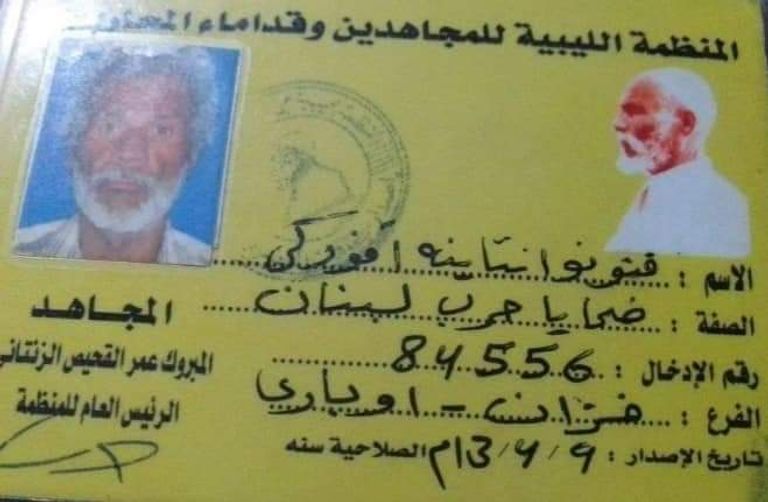 المنظمة الليبية للمجاهدين وقدماء
الاسم : فنونو انتاينه افوركي
الصفة : ضحايا حرب لبنان
رقم الإدخال : 84556
الفرع : فزان - اوباري
تاريخ الإصدار : 9/4/13م الصلاحية سنه
المجاهد
المبروك عمر القحيص الزنتاني
الرئيس العام للمنظمة